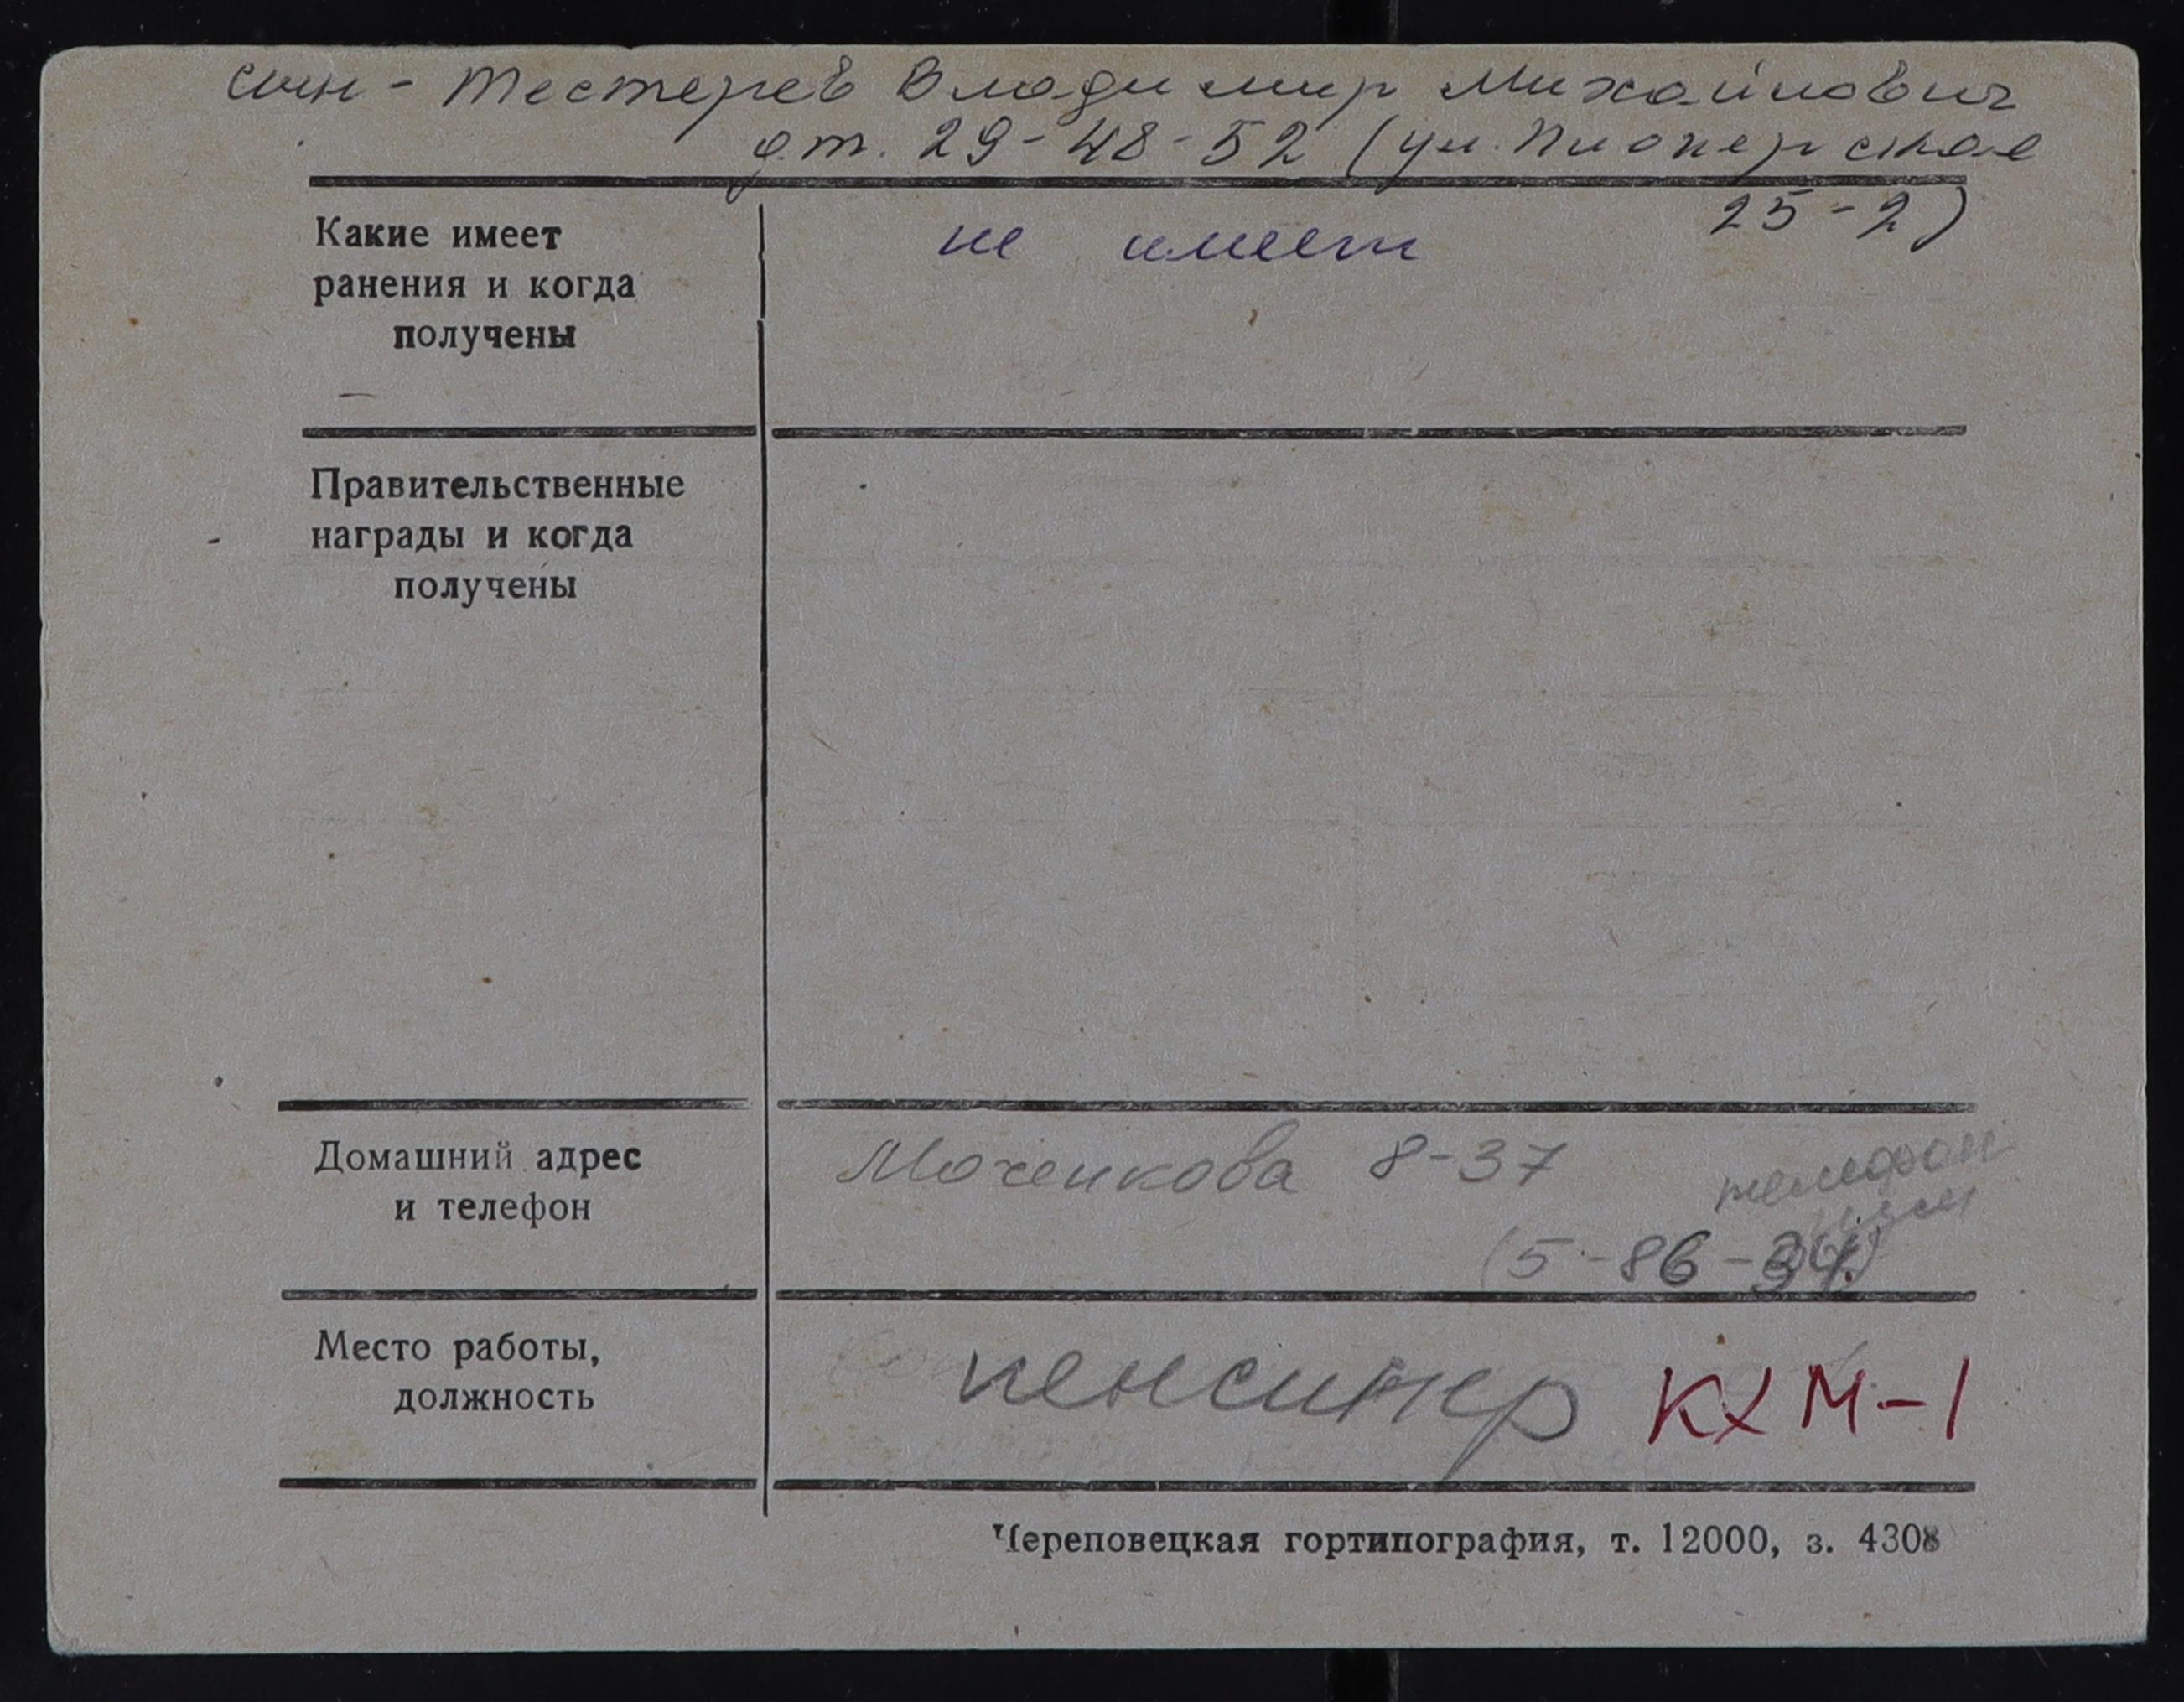 сын - Тестерев Владимир Михайлович
д.т. 29-48-52 (ул. Пионерская
25-2)
Какие имеет
ранения и когда
получены
не имеет
Правительственные
награды и когда
получены
Домашний адрес
и телефон
Моченкова 8-37
телефон
(5-86-34)
Место работы,
должность
пенсинер КХМ-1
Череповецкая гортипография, т. 12000, з. 4308